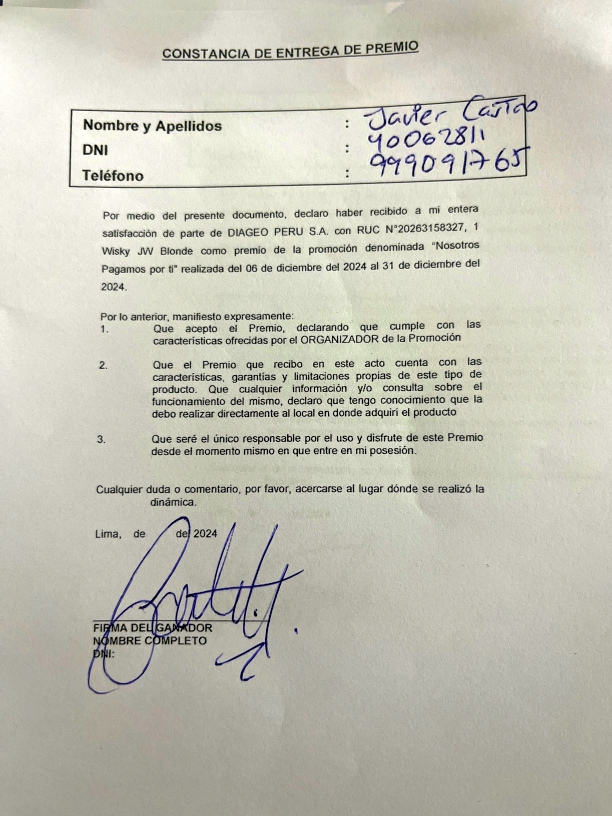 CONSTANCIA DE ENTREGA DE PREMIO
Nombre y Apellidos : Javier Castro
DNI : 40062811
Teléfono : 999091765
Por medio del presente documento, declaro haber recibido a mi entera
satisfacción de parte de DIAGEO PERU S.A. con RUC N°20263158327, 1
Wisky JW Blonde como premio de la promoción denominada "Nosotros
Pagamos por ti" realizada del 06 de diciembre del 2024 al 31 de diciembre del
2024.
Por lo anterior, manifiesto expresamente:
1. Que acepto el Premio, declarando que cumple con las
características ofrecidas por el ORGANIZADOR de la Promoción
2. Que el Premio que recibo en este acto cuenta con las
características, garantías y limitaciones propias de este tipo de
producto. Que cualquier información y/o consulta sobre el
funcionamiento del mismo, declaro que tengo conocimiento que la
debo realizar directamente al local en donde adquirí el producto
3. Que seré el único responsable por el uso y disfrute de este Premio
desde el momento mismo en que entre en mi posesión.
Cualquier duda o comentario, por favor, acercarse al lugar dónde se realizó la
dinámica.
Lima, de de 2024
FIRMA DEL GANADOR
NOMBRE COMPLETO
DNI: